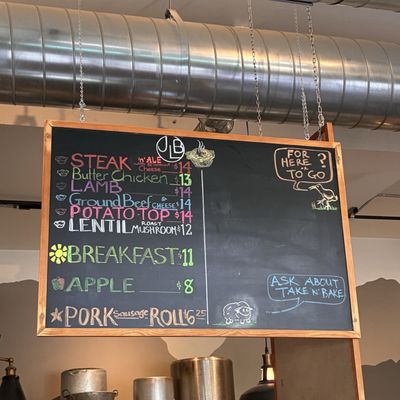 JLB
STEAK n' ALE Cheese $14
Butter Chicken $13
LAMB $14
Ground Beef & CHEESE $14
POTATO TOP $14
LENTIL ROAST MUSHROOM $12
BREAKFAST $11
APPLE $8
PORK Sausage ROLL $6.25
FOR
HERE ?
TO GO
ASK ABOUT
TAKE N' BAKE